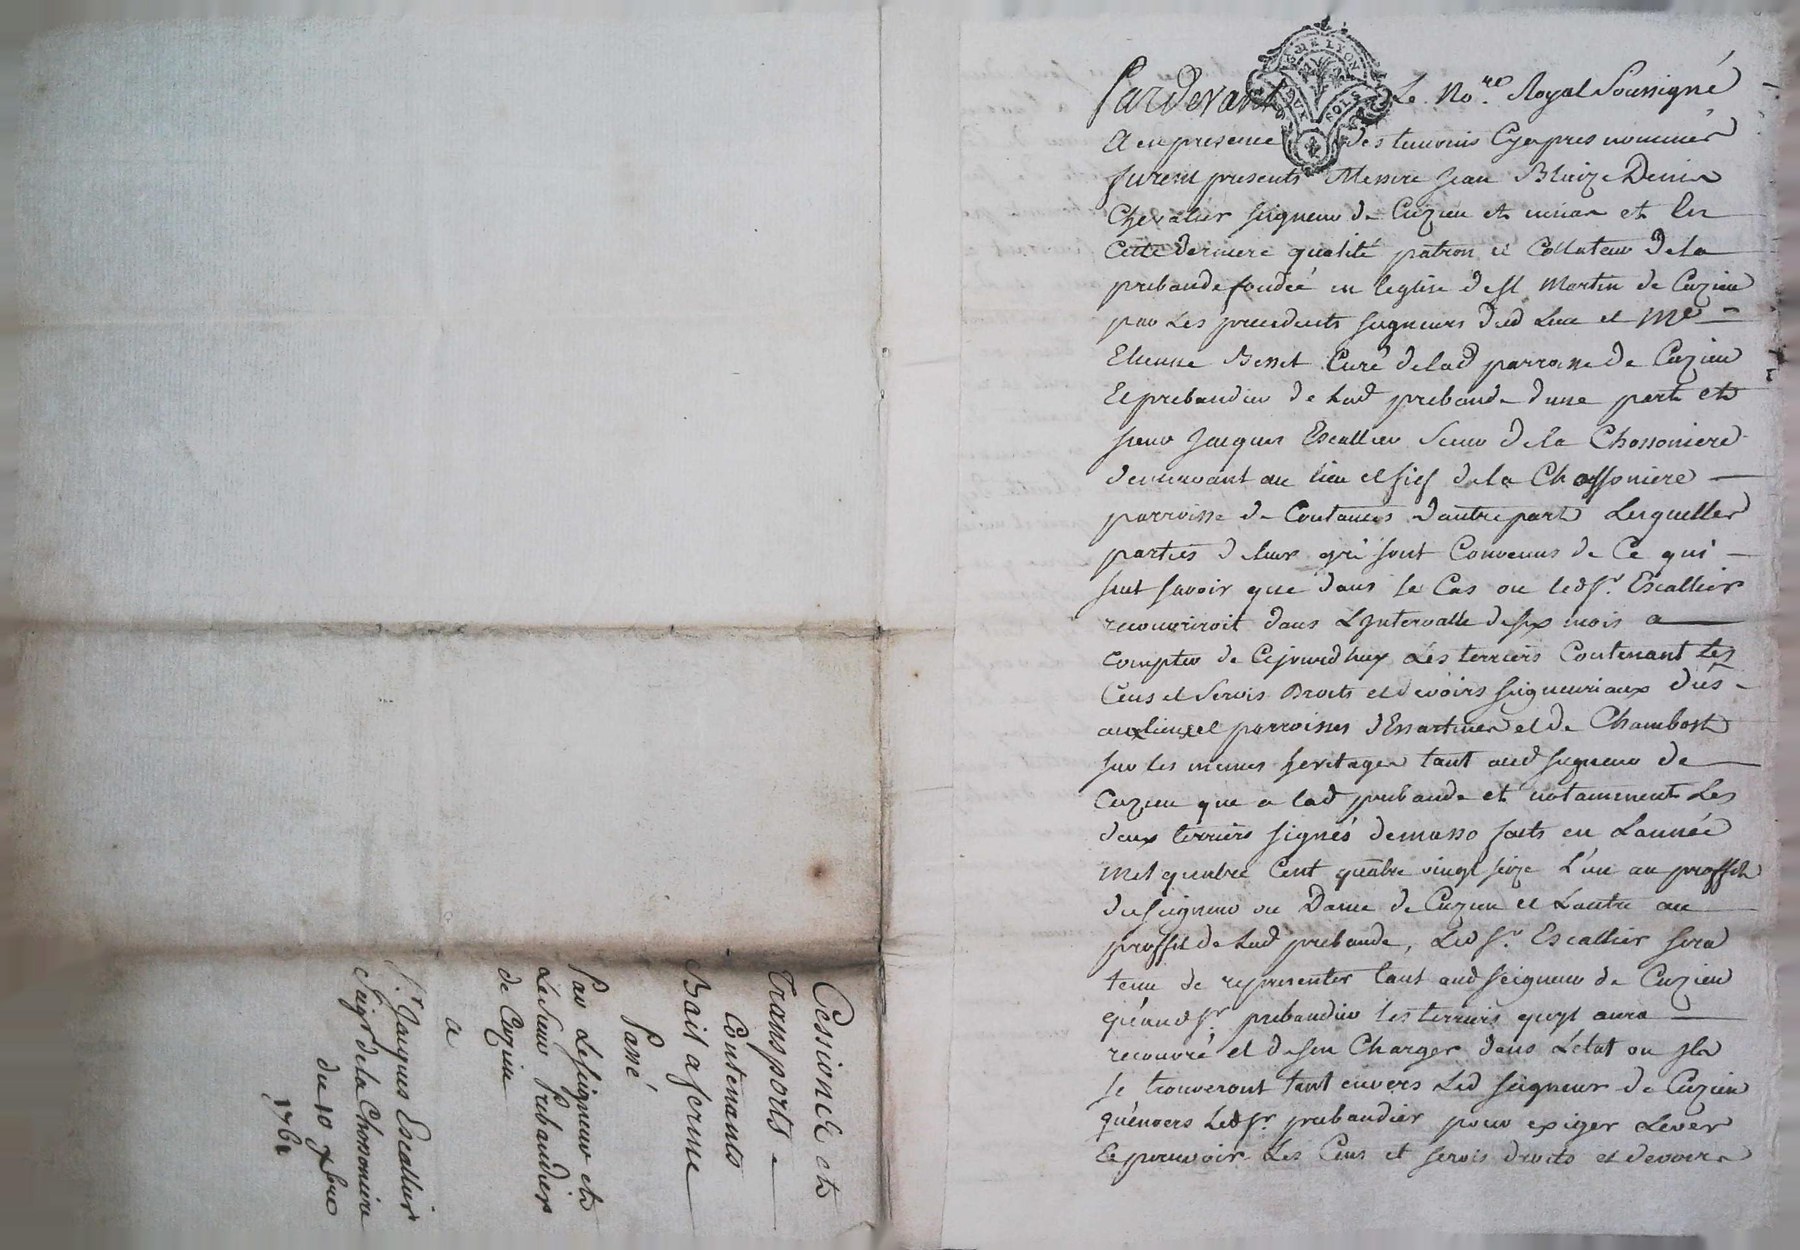 Cessionet et
Transports
Contenants
Bail a ferme
Passé
Par Leseigneur et
Le Sieur Prebandier
de Cuzieu
a
Sr. Jaques Escallier
Seigr. de la Chossoniere
du 10 xbre
GNE LYON
SOLS
Pardevant Le No.re Royal Soussigné
Et en presence des temoins Cyapres nommés
furent presents Messire Jean Blaize Denis
Chevalier seigneur de Cuzieu et unias et En
Cette derniere qualité patron et Collateur dela
prebande fondeé en leglise de St Martin de Cuzieu
par Les precedents seigneurs dud Lieu et Me
Etienne Besset Curé delad parroisse de Cuzieu
Et prebandier de Lad prebande dune part et
sieur Jacques Escallier Sieur dela Chossoniere
demeurant au lieu et fief dela Chossoniere
parroisse de Coutances dautre part Lesquelles
parties deleur gré sont Convenus de Ce qui
suit savoir que dans le Cas ou led Sr. Escallier
recouvriroit dans L'Intervalle desix mois a
compter de Cejourdhuy Les terriers Contenant les
Cens et Servis Droits et devoirs seigneuriaux dûs
aux lieux et parroisses d'Essartines et de Chambost
sur les memes heritages tant aud seigneur de
Cuzieu que a lad prebande et notamment Les
deux terriers signés demasso faits en L'année
mil quatre Cent quatre vingt seize L'un au proffit
du seigneur ou Dame de Cuzieu et Lautre au
proffit de Lad prebande, Led Sr. Escallier sera
tenu de representer tant aud seigneur de Cuzieu
qu'aud Sr. prebandier les terriers quyl aura
recouvré et desen Charger dans Letat ou Ils
se trouveront tant envers Led seigneur de Cuzieu
qu'envers Led Sr. prebandier pour exiger Lever
Et percevoir Les Cens et servis droits et devoirs